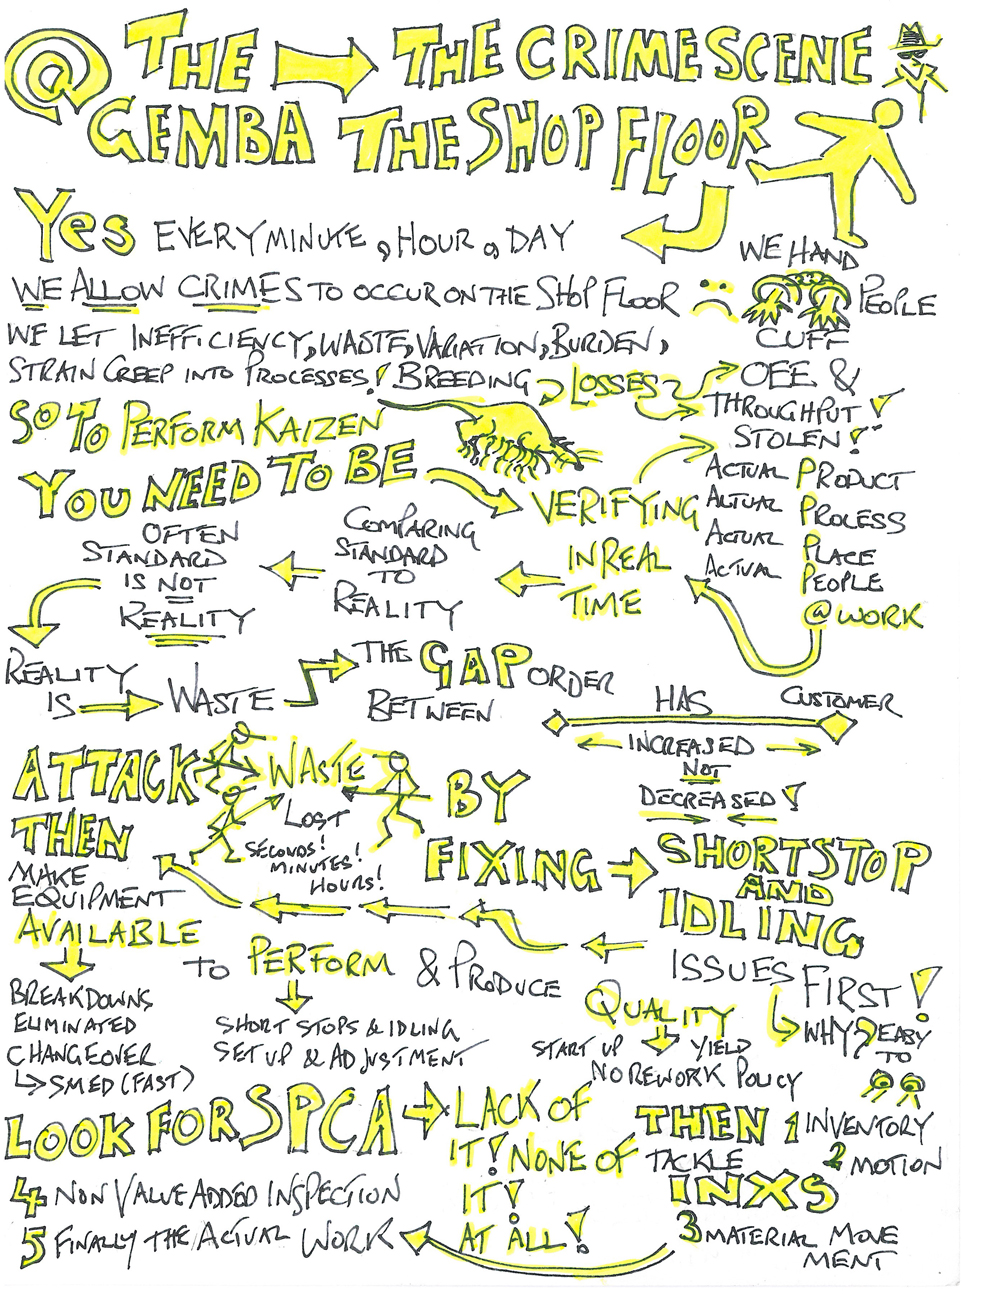 @ THE → THE CRIME SCENE
GEMBA THE SHOP FLOOR
Yes EVERY MINUTE, HOUR, DAY
WE ALLOW CRIMES TO OCCUR ON THE SHOP FLOOR
WE HAND
CUFF
PEOPLE
WE LET INEFFICIENCY, WASTE, VARIATION, BURDEN,
STRAIN CREEP INTO PROCESSES! BREEDING → LOSSES
OEE &
THROUGHPUT
STOLEN!
SO TO PERFORM KAIZEN
YOU NEED TO BE
VERIFYING
ACTUAL PRODUCT
ACTUAL PROCESS
ACTUAL PLACE
ACTUAL PEOPLE
@ WORK
IN REAL
TIME
COMPARING
STANDARD
TO
REALITY
OFTEN
STANDARD
IS NOT
REALITY
REALITY
IS → WASTE
THE GAP
BETWEEN
ORDER
HAS
CUSTOMER
INCREASED
NOT
DECREASED!
ATTACK WASTE
LOST
SECONDS!
MINUTES!
HOURS!
BY
FIXING →
SHORTSTOP
AND
IDLING
ISSUES FIRST!
WHY? EASY
TO
THEN
MAKE
EQUIPMENT
AVAILABLE
BREAKDOWNS
ELIMINATED
CHANGEOVER
SMED (FAST)
TO PERFORM & PRODUCE
SHORT STOPS & IDLING
SET UP & ADJUSTMENT
QUALITY
START UP YIELD
NO REWORK POLICY
LOOK FOR SPCA →
LACK OF
IT! NONE OF
IT!
AT ALL!
THEN
TACKLE
INXS
1 INVENTORY
2 MOTION
3 MATERIAL MOVE
MENT
4 NON VALUE ADDED INSPECTION
5 FINALLY THE ACTUAL WORK